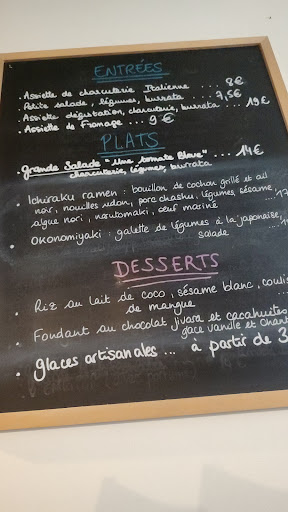 ENTRÉES
. Assiette de charcuterie Italienne .... 8€
. Petite salade, légumes, burrata .... 7,5€
. Assiette dégustation, charcuterie, burrata .... 19€
. Assiette de fromage ... 9€
PLATS
. Grande Salade "Une tomate bleue" .... 14€
charcuterie, légumes, burrata
. Ichiraku ramen : bouillon de cochon grillé et ail
noir, nouilles udon, porc chashu, légumes, sésame,
algue nori, narutomaki, oeuf mariné
. Okonomiyaki : galette de légumes à la japonaise,
salade
DESSERTS
. Riz au lait de coco, sésame blanc, coulis
de mangue
. Fondant au chocolat jivara et cacahuètes
glace vanille et
. glaces artisanales ... à partir de 3